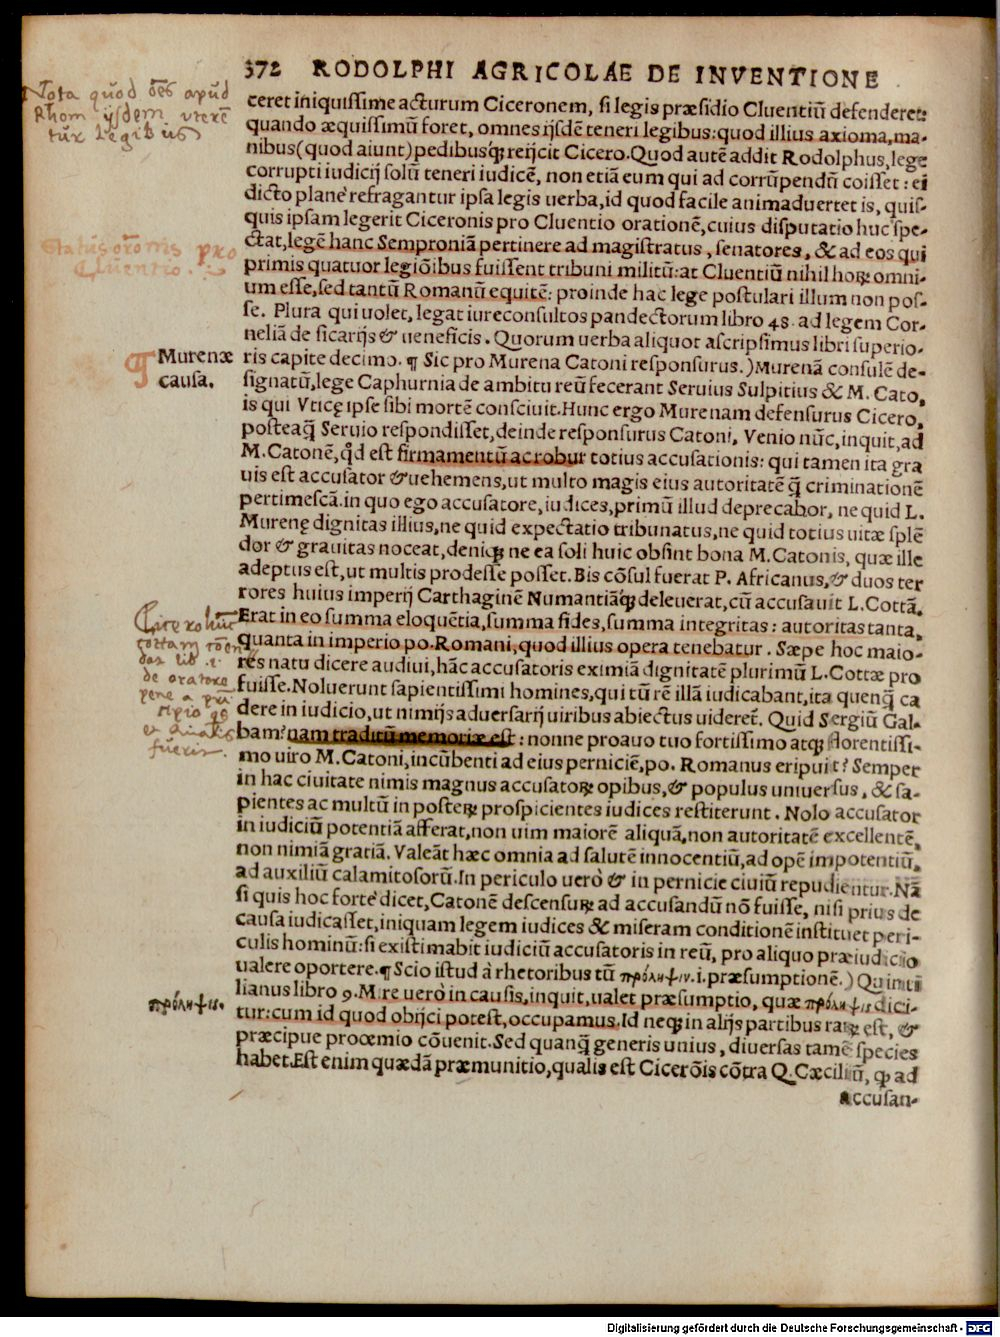 372 RODOLPHI AGRICOLAE DE INVENTIONE
Nota quod oēs apud
Rhom ijsdem vterē
tur legibus
ceret iniquissime acturum Ciceronem, si legis præsidio Cluentiū defenderet:
quando æquissimū foret, omnes ijsdē teneri legibus: quod illius axioma, ma-
nibus (quod aiunt) pedibusꝙ reijcit Cicero. Quod autē addit Rodolphus, lege
corrupti iudicij solū teneri iudicē, non etiā eum qui ad corrūpendū coisset: ei
dicto planè refragantur ipsa legis uerba, id quod facile animaduertet is, quis-
quis ipsam legerit Ciceronis pro Cluentio orationē, cuius disputatio huc spe-
Status orōnis pro
Cluentio.
ctat, legē hanc Semproniā pertinere ad magistratus, senatores, & ad eos qui
primis quatuor legiōibus fuissent tribuni militū: at Cluentiū nihil horꝝ omni-
um esse, sed tantū Romanū equitē: proinde hac lege postulari illum non pos-
se. Plura qui uolet, legat iureconsultos pandectorum libro 48. ad legem Cor-
neliā de sicarijs & ueneficis. Quorum uerba aliquot ascripsimus libri superio-
Murenæ
causa.
ris capite decimo. ¶ Sic pro Murena Catoni responsurus.) Murenā consulē de-
signatū, lege Caphurnia de ambitu reū fecerant Seruius Sulpitius & M. Cato,
is qui Vticę ipse sibi mortē consciuit. Hunc ergo Murenam defensurus Cicero,
posteaq̃ Seruio respondisset, deinde responsurus Catoni, Venio nūc, inquit, ad
M. Catonē, qd̓ est firmamentū ac robur totius accusationis: qui tamen ita gra
uis est accusator & uehemens, ut multo magis eius autoritatē q̃ criminationē
pertimescā. in quo ego accusatore, iudices, primū illud deprecabor, ne quid L.
Murenę dignitas illius, ne quid expectatio tribunatus, ne quid totius uitæ splē
dor & grauitas noceat, deniqꝫ ne ea soli huic obsint bona M. Catonis, quæ ille
adeptus est, ut multis prodesse posset. Bis cōsul fuerat P. Africanus, & duos ter
rores huius imperij Carthaginē Numantiāqꝫ deleuerat, cū accusauit L. Cottā.
Erat in eo summa eloquētia, summa fides, summa integritas: autoritas tanta,
quanta in imperio po. Romani, quod illius opera tenebatur. Sæpe hoc maio-
de oratore
res natu dicere audiui, hāc accusatoris eximiā dignitatē plurimū L. Cottæ pro
fuisse. Noluerunt sapientissimi homines, qui tū rē illā iudicabant, ita quenq̃ ca
dere in iudicio, ut nimijs aduersarij uiribus abiectus uideret̄. Quid Sergiū Gal-
bam? nam traditū memoriæ est: nonne proauo tuo fortissimo atqꝫ florentissi-
mo uiro M. Catoni, incūbenti ad eius perniciē, po. Romanus eripuit? Semper
in hac ciuitate nimis magnus accusatorꝝ opibus, & populus uniuersus, & sa-
pientes ac multū in posterꝝ prospicientes iudices restiterunt. Nolo accusator
in iudiciū potentiā afferat, non uim maiorē aliquā, non autoritatē excellentē,
non nimiā gratiā. Valeāt hæc omnia ad salutē innocentiū, ad opē impotentiū,
ad auxiliū calamitosorū. In periculo uerò & in pernicie ciuiū repudientur. Nā
si quis hoc fortè dicet, Catonē descensurꝝ ad accusandū nō fuisse, nisi prius de
causa iudicasset, iniquam legem iudices & miseram conditionē instituet peri-
culis hominū: si existimabit iudiciū accusatoris in reū, pro aliquo præiudicio
ualere oportere. ¶ Scio istud à rhetoribus tū πρόληψιν .i. præsumptionē.) Quinti
πρόληψις.
lianus libro 9. Mire uerò in causis, inquit, ualet præsumptio, quæ πρόληψις dici-
tur: cum id quod obijci potest, occupamus. Id neqꝫ in alijs partibus rarꝝ est, &
præcipue procemio cōuenit. Sed quanq̃ generis unius, diuersas tamē species
habet. Est enim quædā præmunitio, qualis est Cicerōis cōtra Q. Cæciliū, ꝙ ad
accusan-
Digitalisierung gefördert durch die Deutsche Forschungsgemeinschaft - DFG